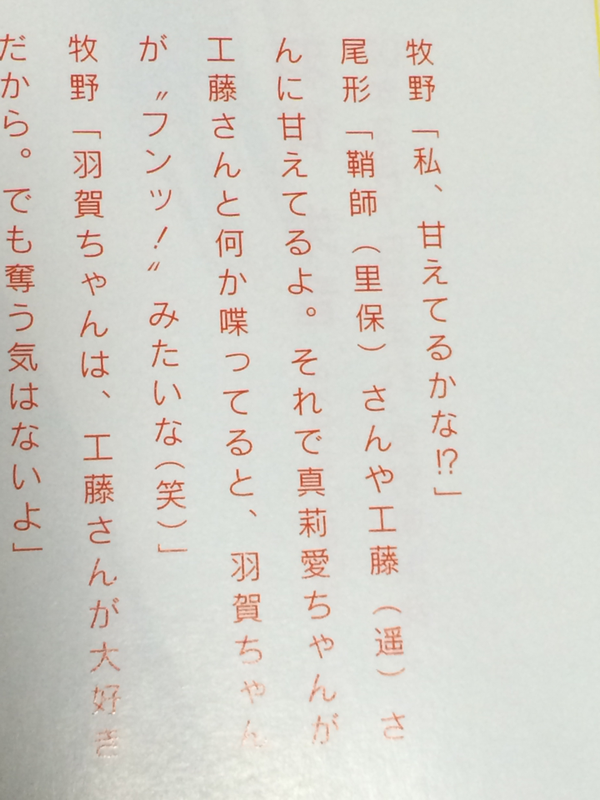 牧野「私、甘えてるかな!?」
尾形「鞘師（里保）さんや工藤（遥）さ
んに甘えてるよ。それで真莉愛ちゃんが
工藤さんと何か喋ってると、羽賀ちゃん
が〝フンッ！〟みたいな（笑）」
牧野「羽賀ちゃんは、工藤さんが大好き
だから。でも奪う気はないよ」